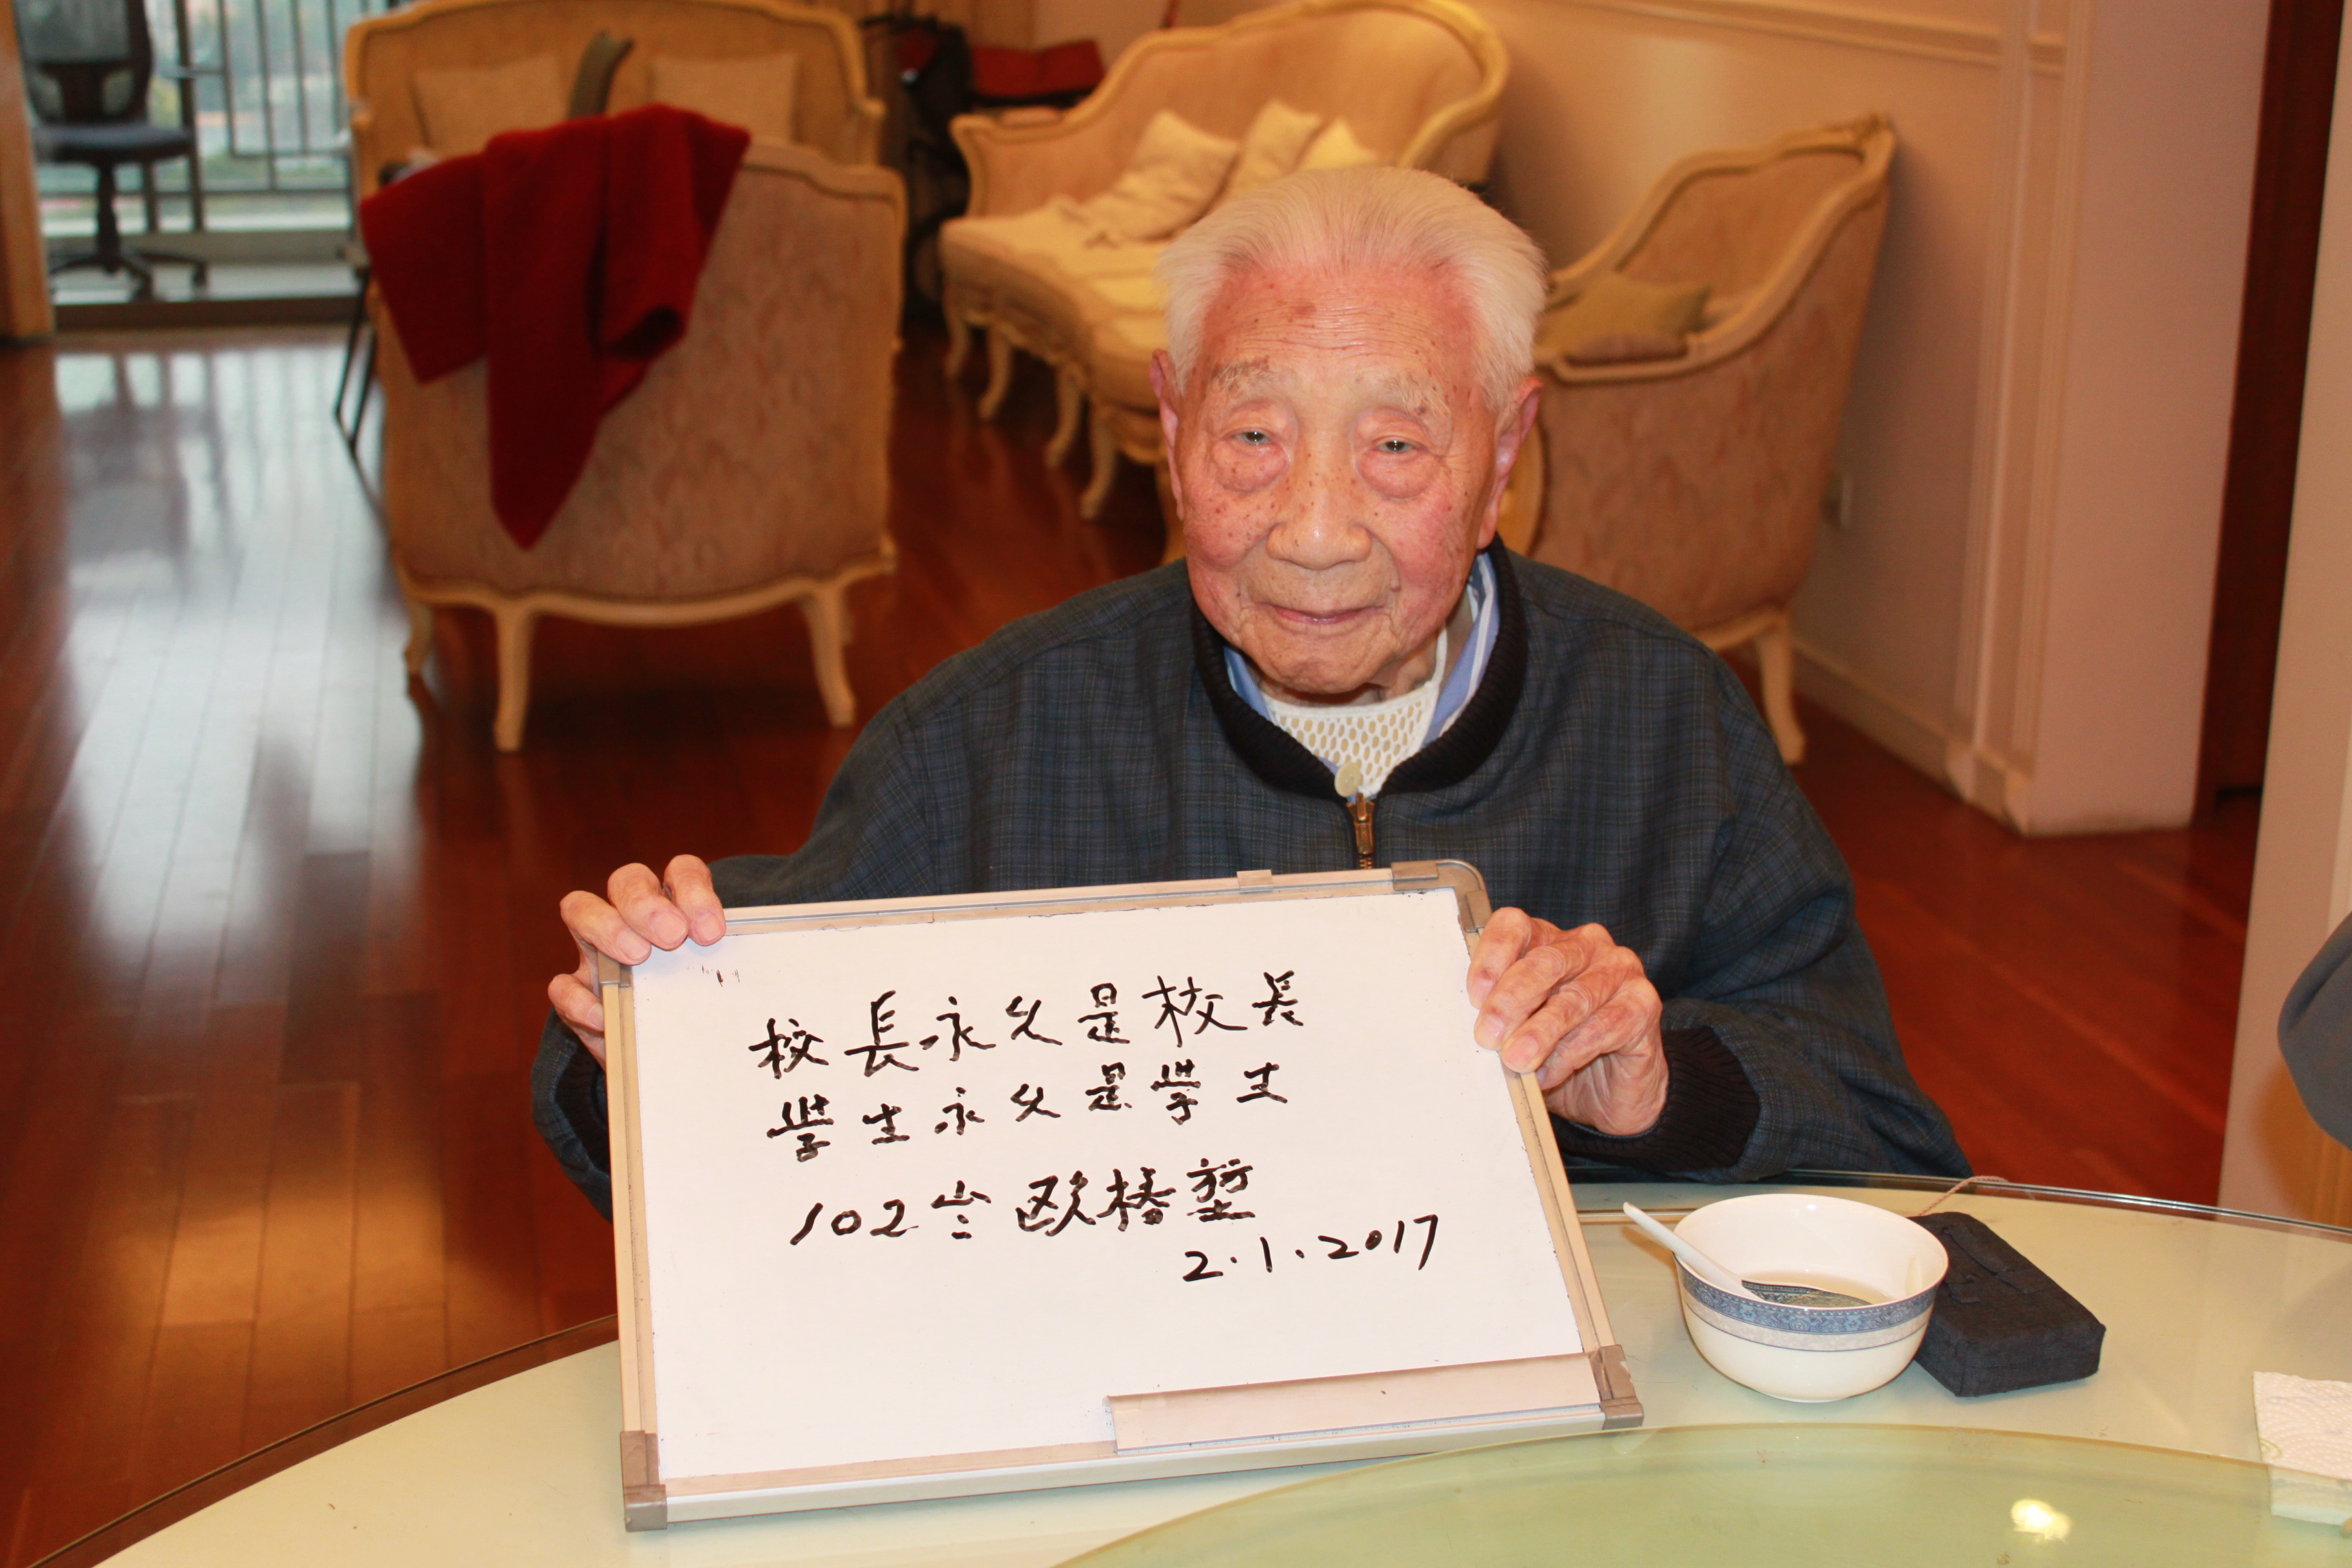 校長永久是校長
學生永久是學生
102岁欧椿堃
2.1.2017